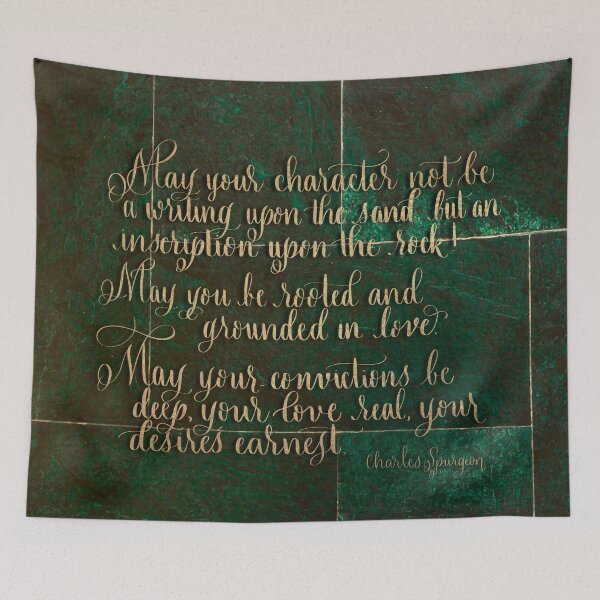 May your character not be
a writing upon the sand but an
inscription upon the rock!
May you be rooted and
grounded in love.
May your convictions be
deep, your love real, your
desires earnest.
Charles Spurgeon